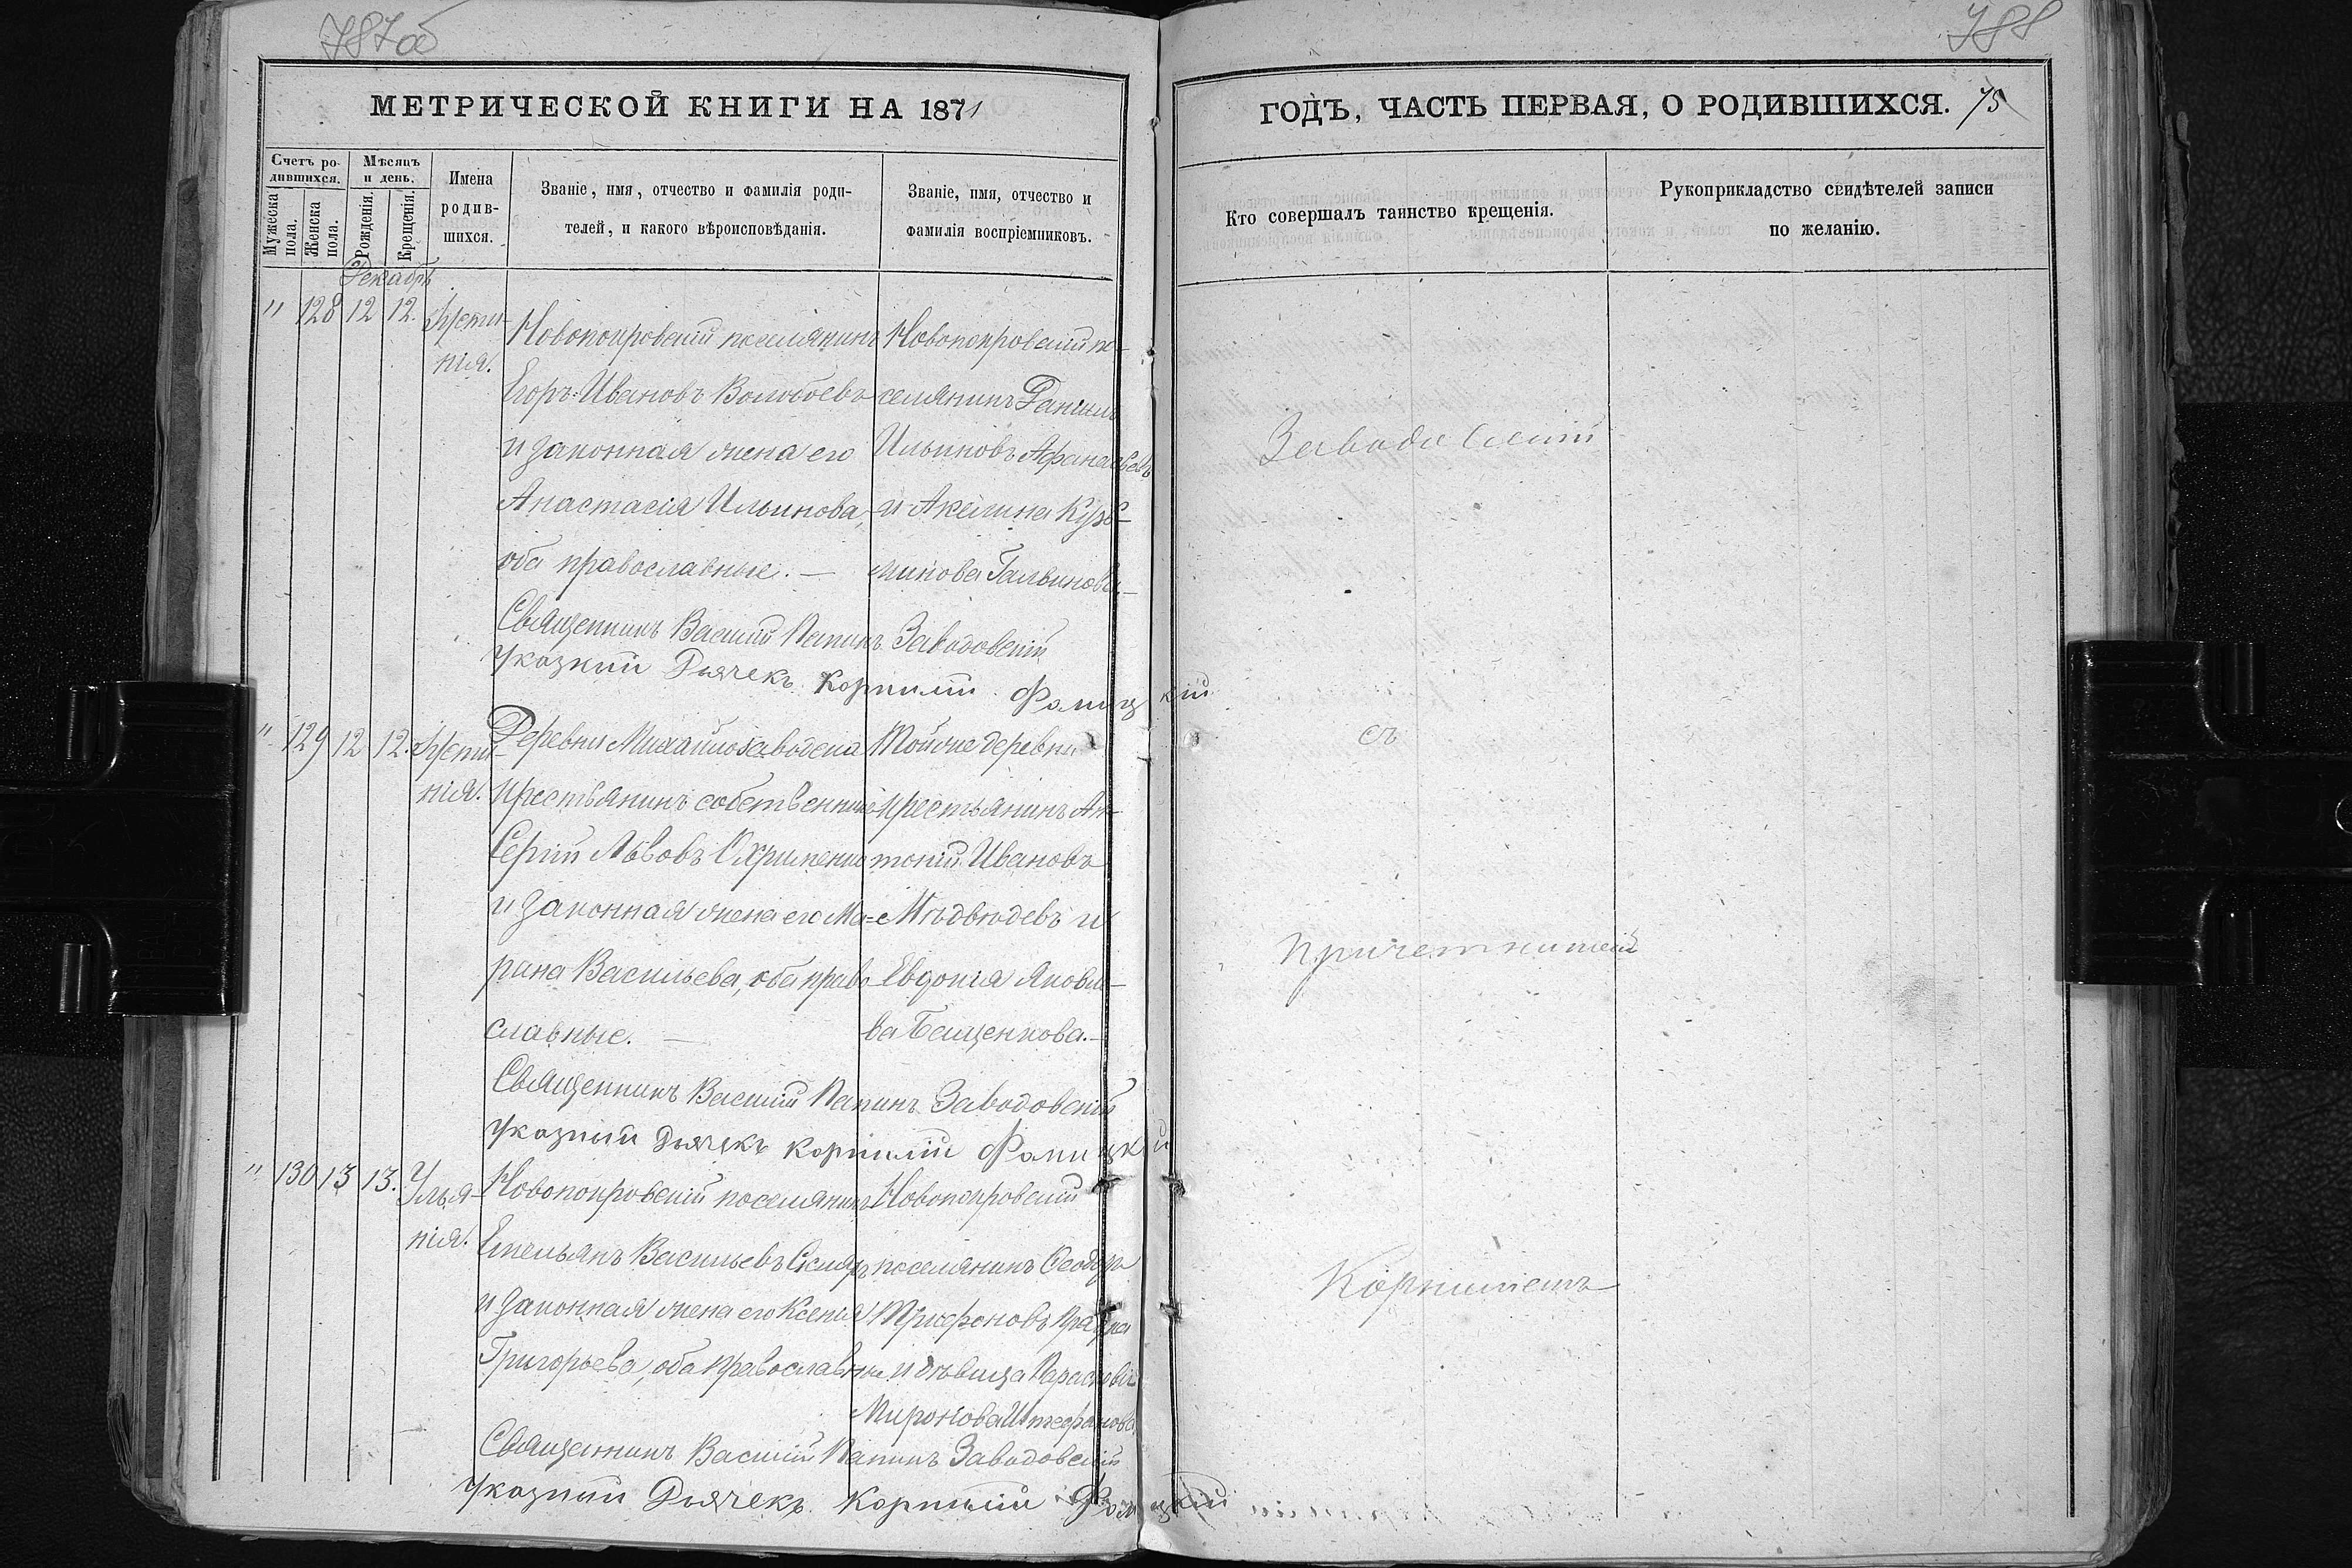 787об
788
МЕТРИЧЕСКОЙ КНИГИ НА 1871
ГОДЪ, ЧАСТЬ ПЕРВАЯ, О РОДИВШИХСЯ. 75
Счетъ ро-
дившихся.
Мужеска
пола.
Женска
пола.
Мѣсяцъ
и день.
Рожденія.
Крещенія.
Имена
родив-
шихся.
Званіе, имя, отчество и фамилія роди-
телей, и какого вѣроисповѣданія.
Званіе, имя, отчество и
фамилія воспріемниковъ.
Кто совершалъ таинство крещенія.
Рукоприкладство свидѣтелей записи
по желанію.
Декабрь
" 128 12 12.
нія.
Новопокровскій поселянинъ
Егоръ Ивановъ Волобоевъ
и законная жена его
Анастасія Ильинова,
оба православные. —
Новопокровскій по-
селянинъ Даніилъ
Ильиновъ Афанасьевъ
и Акилина Кузь-
минова Гальвинова.—
Священникъ Василій Папинъ Заводовскій
Указный Дьячекъ Корнилій Фомицкій
" 129 12 12.
нія.
Деревни Михайлозаводска
крестьянинъ собственникъ
Сергій Львовъ Охрименко
и законная жена его Ма=
рина Васильева, оба право
славные. —
Тойже деревни
крестьянинъ Ан-
тоній Ивановъ
Мѣдвѣдевъ и
Евдокія Яковле-
ва Бещенкова.—
Священникъ Василій Папинъ Заводовскій
Указный Дьячекъ Корнилій Фомицкій
" 130 13 13.
Улья-
нія.
Новопокровскій поселянинъ
Емельянъ Васильевъ Скляръ
и законная жена его Ксенія
Григорьева, оба православные
Новопокровскій
поселянинъ Ѳеодоръ
Трифоновъ
и дѣвица Параскева
Миронова
Священникъ Василій Папинъ Заводовскій
Указный Дьячекъ Корнилій Фомицкій
Заводовскій
съ
причетникомъ
Корниліемъ